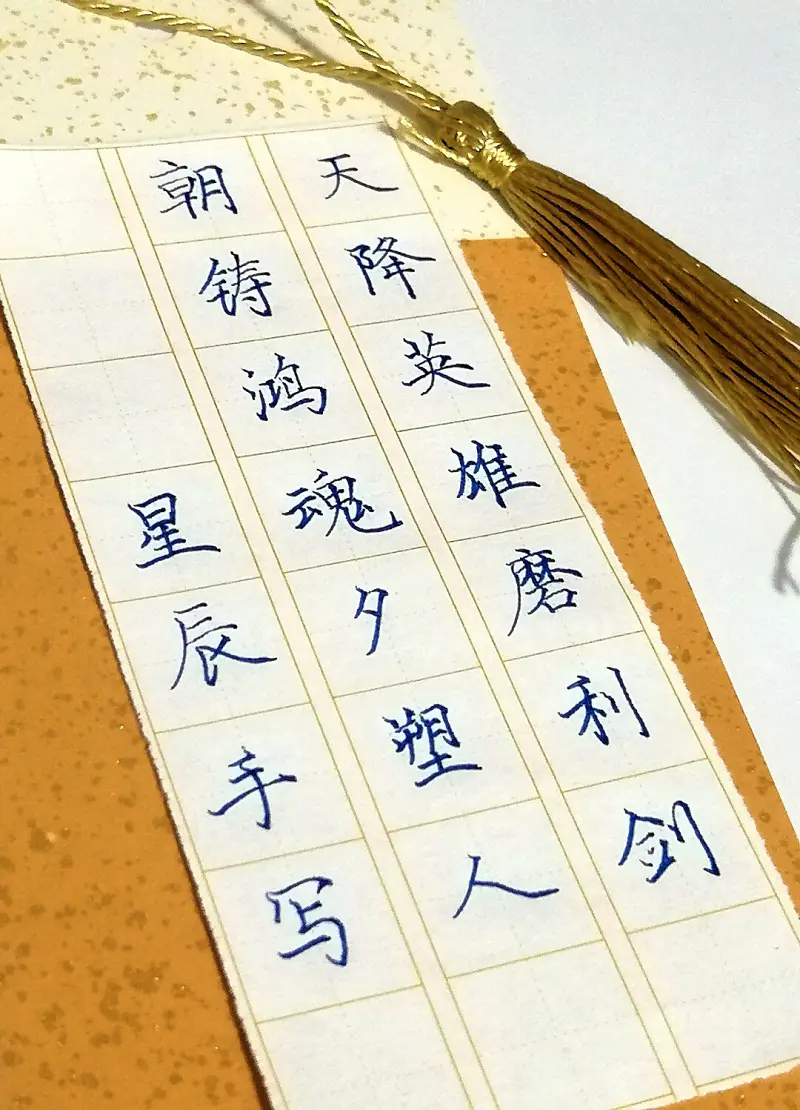 天降英雄磨利剑
朝铸鸿魂夕塑人
星辰手写